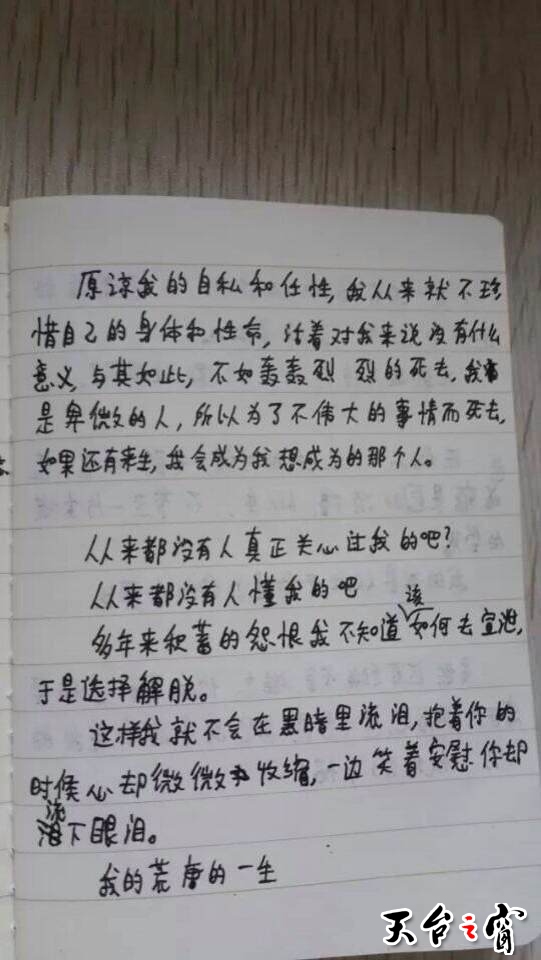 原谅我的自私和任性,我从来就不珍
惜自己的身体和性命,活着对我来说没有什么
意义,与其如此,不如轰轰烈 烈的死去,我
是卑微的人,所以为了不伟大的事情而死去,
如果还有来生,我会成为我想成为的那个人。
从来都没有人真正关心过我的吧?
从来都没有人懂我的吧
多年来积蓄的怨恨我不知道该如何去宣泄,
于是选择解脱。
这样我就不会在黑暗里流泪,抱着你的
时候心却微微收缩,一边笑着安慰你却
流下眼泪。
我的荒唐的一生
天台之窗